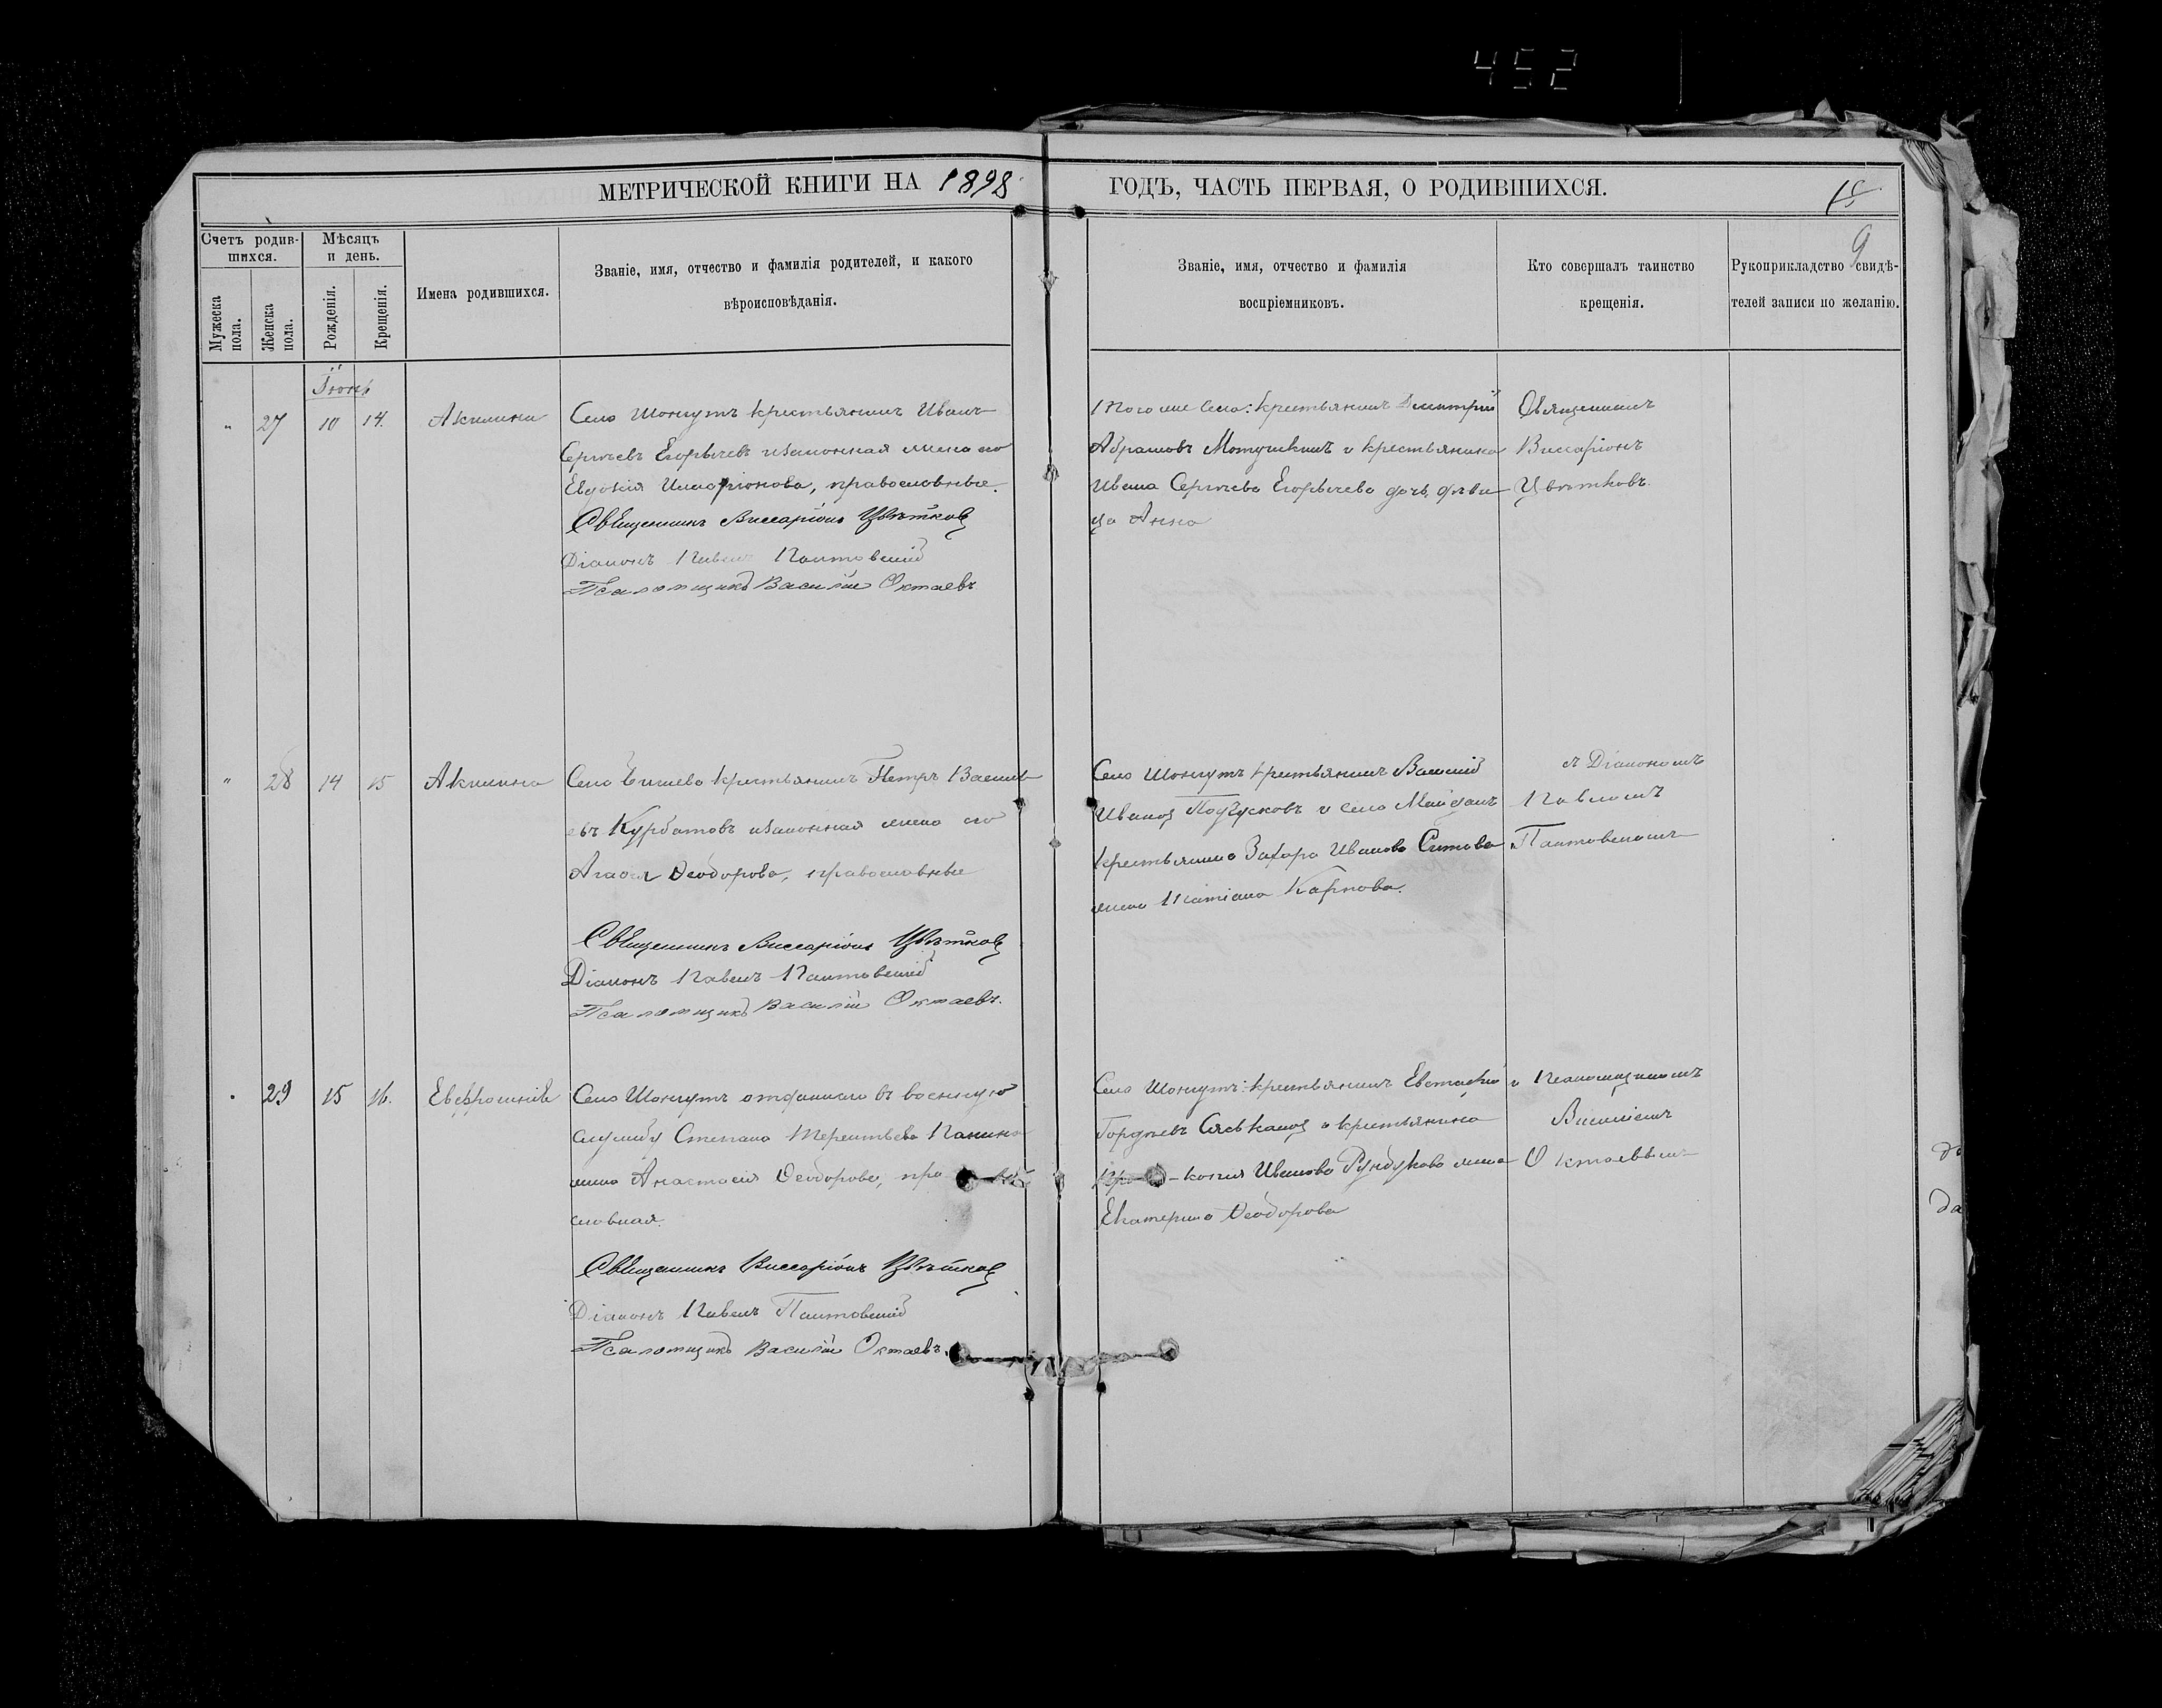 452
МЕТРИЧЕСКОЙ КНИГИ НА 1898 ГОДЪ, ЧАСТЬ ПЕРВАЯ, О РОДИВШИХСЯ.
9
Счетъ родившихся.
Мужеска пола.
Женска пола.
Мѣсяцъ и день.
Рожденія.
Крещенія.
Имена родившихся.
Званіе, имя, отчество и фамилія родителей, и какого
вѣроисповѣданія.
Званіе, имя, отчество и фамилія
воспріемниковъ.
Кто совершалъ таинство
крещенія.
Рукоприкладство свидѣ-
телей записи по желанію.
Іюнь
" 27 10 14. Акилина
Село Шокнутъ крестьянинъ Иванъ
Сергѣевъ Егорычевъ и законная жена его
Евдокія Иларіонова, православные.
Священникъ Виссаріонъ Цвѣтковъ
Діаконъ Павелъ
Псаломщикъ Василій Октаевъ
Того же села: крестьянинъ Дмитрій
Абрамовъ Мотушкинъ и крестьянина
Ивана Сергѣева Егорычева дочь, дѣви
ца Анна
Священникъ
Виссаріонъ
Цвѣтковъ.
" 28 14 15 Акилина
Село крестьянинъ Петръ Василь
евъ Курбатовъ и законная жена его
Агаѳія Ѳеодорова, православные
Священникъ Виссаріонъ Цвѣтковъ
Діаконъ Павелъ
Псаломщикъ Василій Октаевъ.
Село Шокнутъ крестьянинъ Василій
Ивановъ и село Майданъ
крестьянина Захара Иванова Ситова
жена Татіана Карпова.
съ Діакономъ
Павломъ
" 29 15 16. Евфросинія
Село Шокнутъ отданнаго въ военную
службу Степана Терентьева Панина
жена Анастасія Ѳеодорова, право
славная.
Священникъ Виссаріонъ Цвѣтковъ
Діаконъ Павелъ
Псаломщикъ Василій Октаевъ.
Село Шокнутъ: крестьянинъ Евстафій
Гордѣевъ и крестьянина
Прокопія Иванова Рундукова жена
Екатерина Ѳеодорова
и псаломщикомъ
Василіемъ
Октаевымъ
да